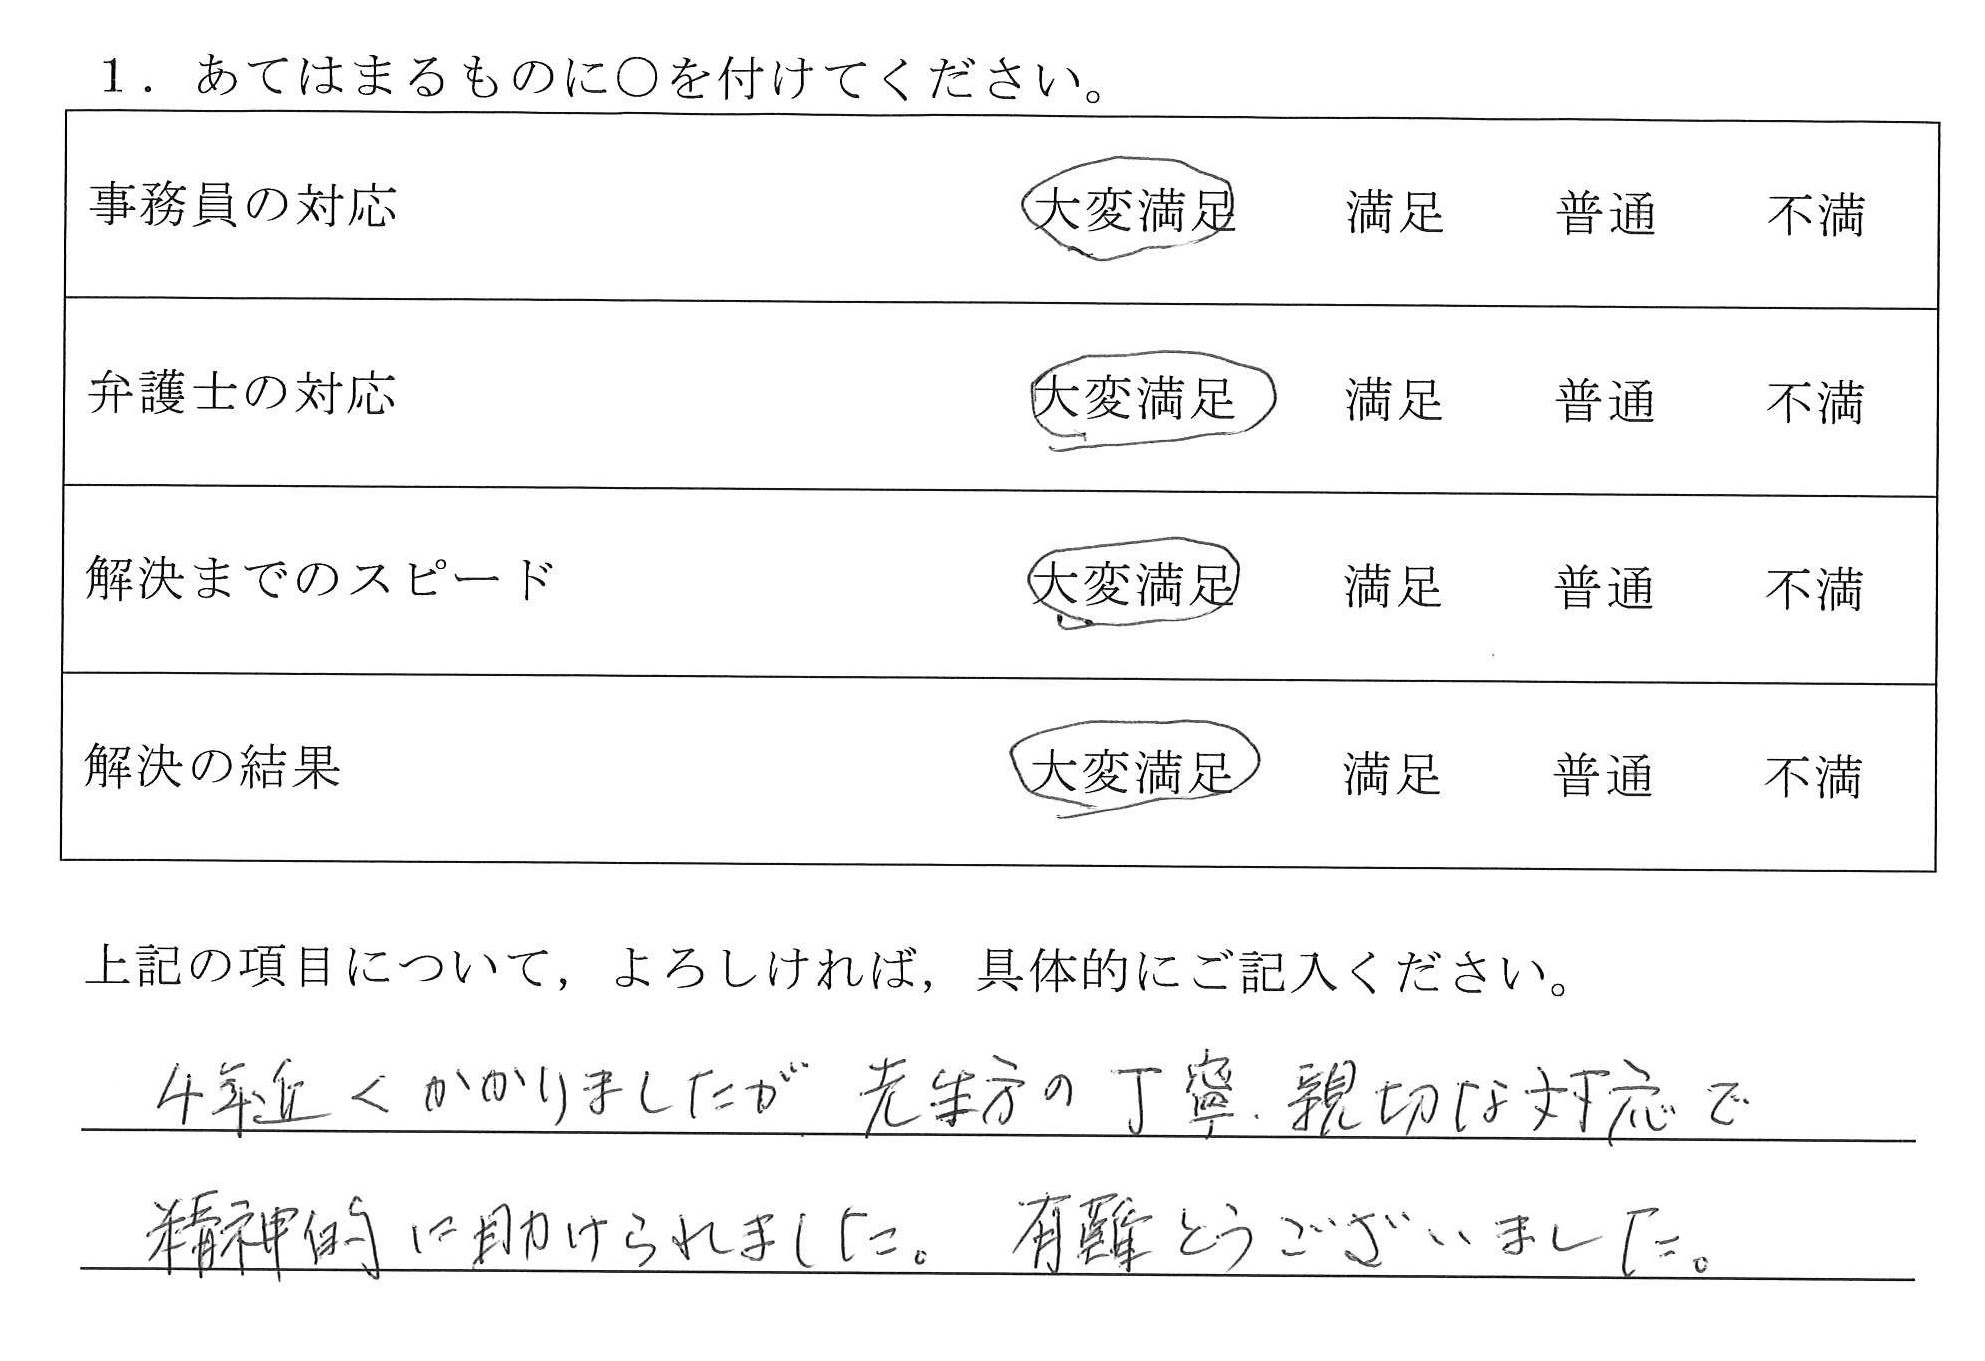 1．あてはまるものに○を付けてください。
事務員の対応 大変満足 満足 普通 不満
弁護士の対応 大変満足 満足 普通 不満
解決までのスピード 大変満足 満足 普通 不満
解決の結果 大変満足 満足 普通 不満
上記の項目について，よろしければ，具体的にご記入ください。
4年近くかかりましたが 先生方の丁寧.親切な対応で
精神的に助けられました。有難とうございました。